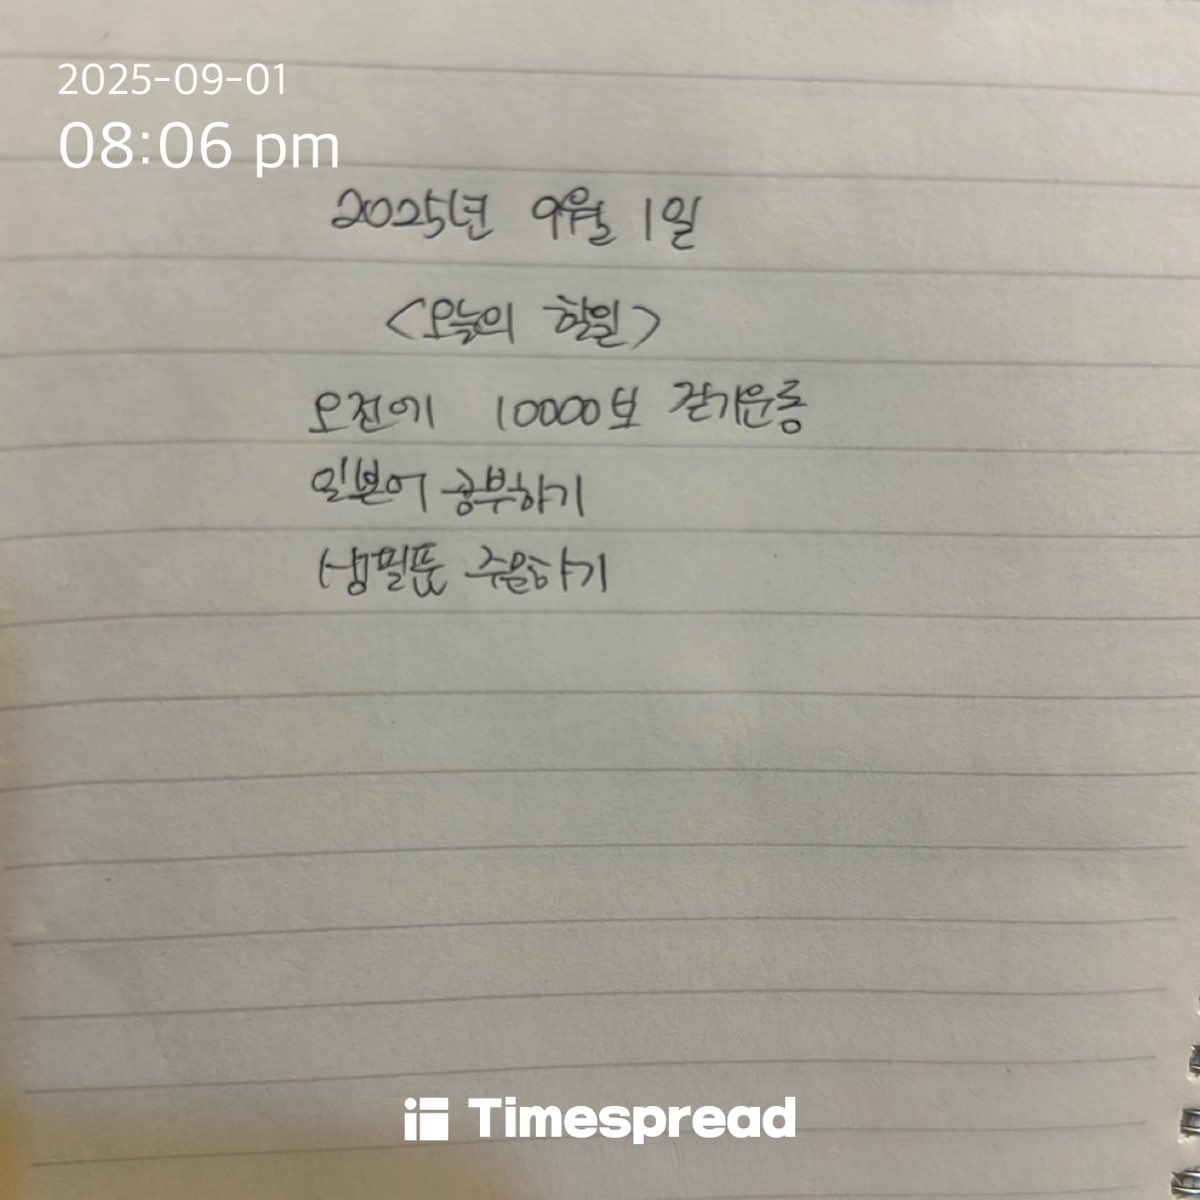 2025-09-01
08:06 pm
2025년 9월 1일
<오늘의 할일>
오전에 10000보 걷기운동
일본어 공부하기
생필품 주문하기
Timespread